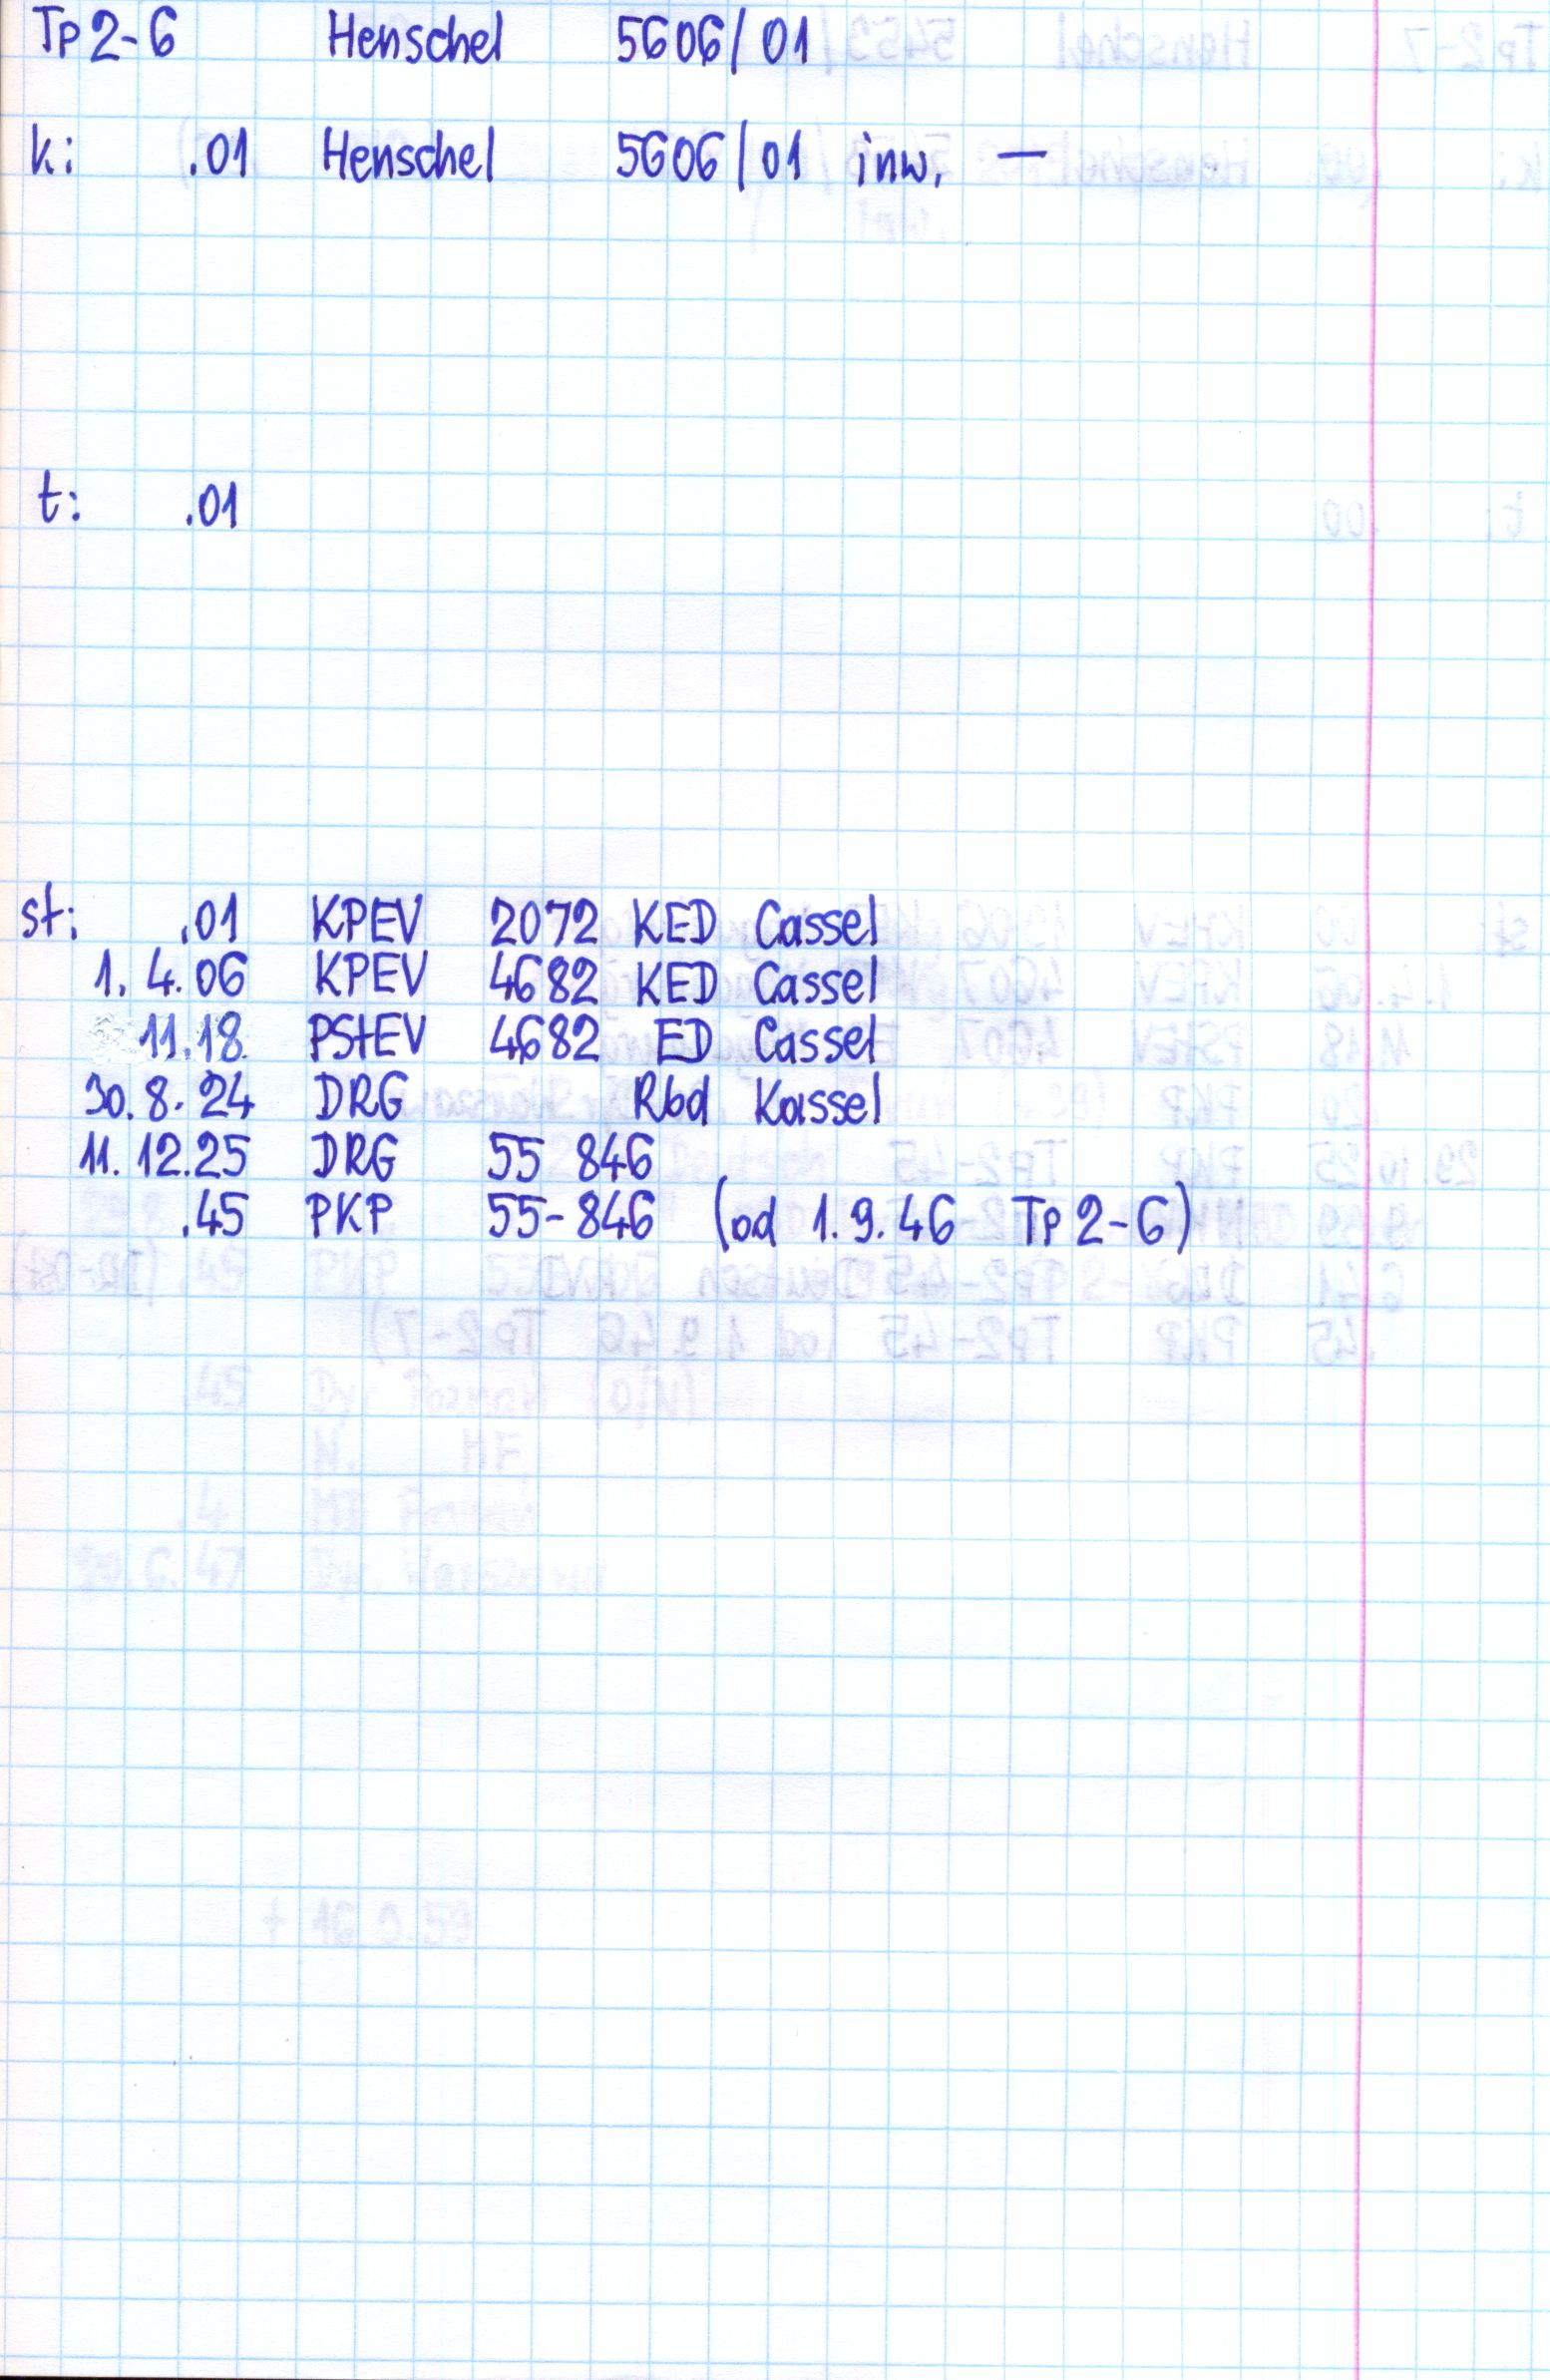 Tp2-6 Henschel 5606/01
k: .01 Henschel 5606/01 inw. —
t: .01
st: .01 KPEV 2072 KED Cassel
1.4.06 KPEV 4682 KED Cassel
11.18 PStEV 4682 ED Cassel
30.8.24 DRG Rbd Kassel
11.12.25 DRG 55 846
.45 PKP 55-846 (od 1.9.46 Tp2-6)